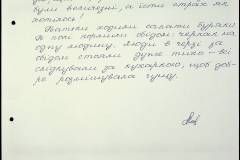 були величезні, а їсти страх як
хотілося!
Вчителі ходили сапати буряки.
В полі кормили обідом: черпак на
одну людину. Люди в черзі за
обідом стояли дуже тихо – всі
слідкували за кухаркою, щоб доб-
ре розмішувала гущу.